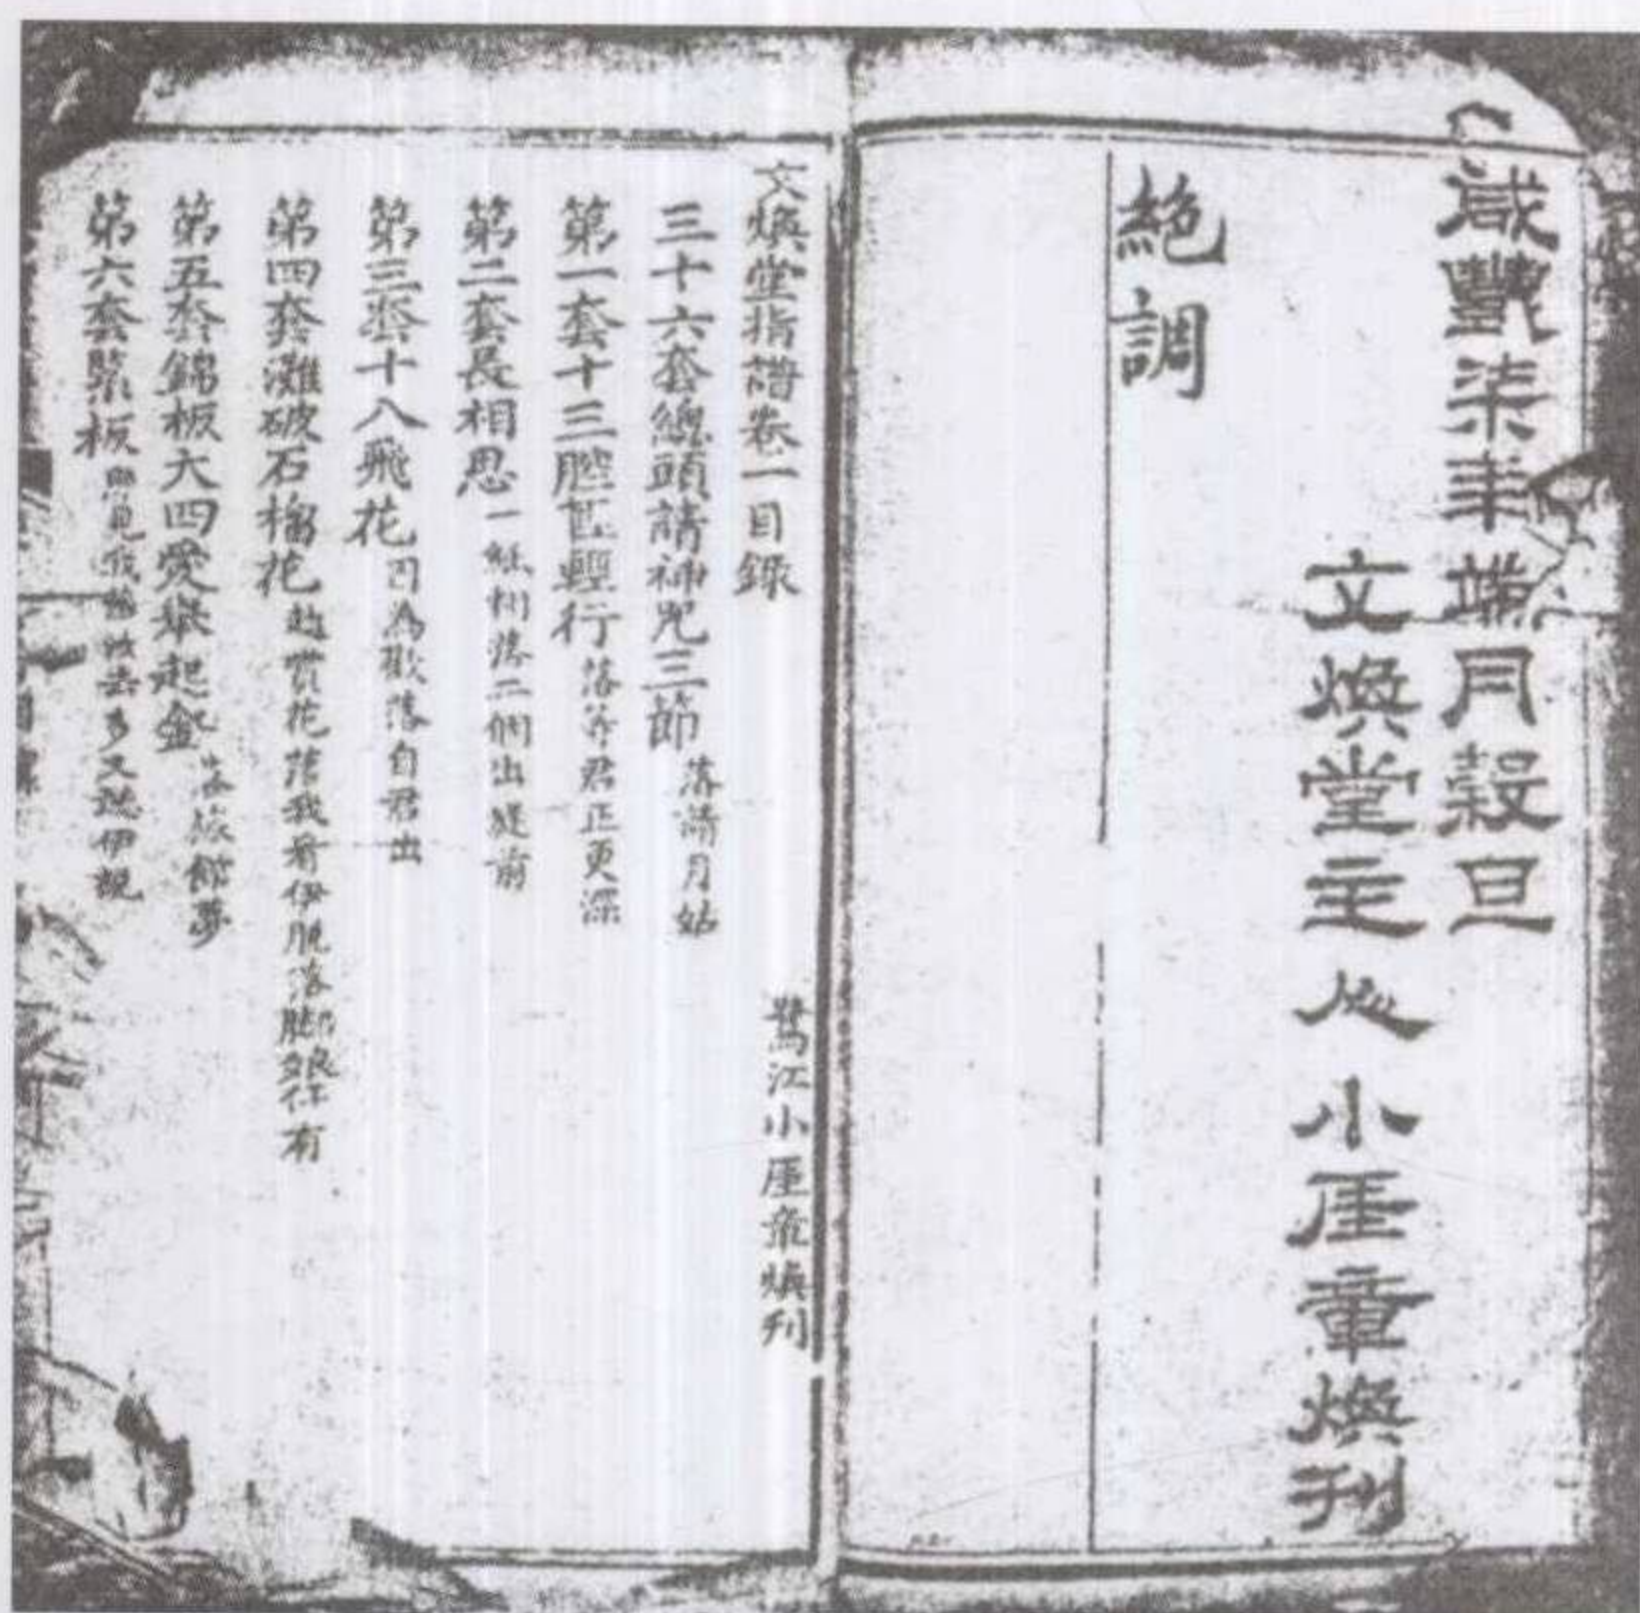 咸豐柒年端月穀旦
文煥堂主人小厓章煥刊
絶調
文煥堂指譜卷一目錄
鷺江小厓章煥刊
三十六套總頭請神咒三節 落清月姑
第一套十三腔匹輕行 落筭君正更深
第二套長相思 一紙相落二個出庭前
第三套十八飛花 因為歡落自君出
第四套灘破石榴花 越賞花落我看伊脫落脚踉伴有
第五套錦板大四愛舉起金 落旅館夢
第六套緊板 去多又聽伊親